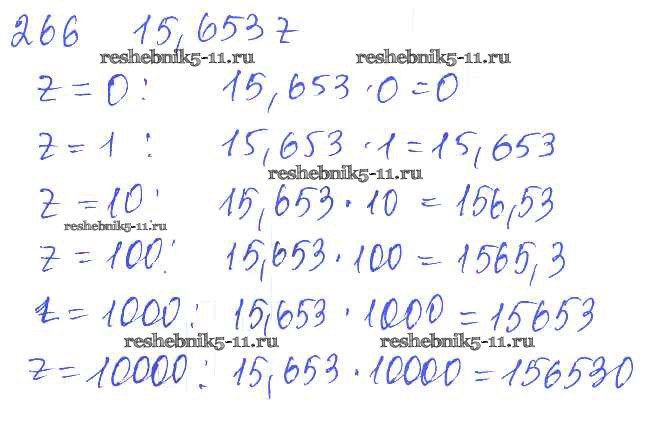 266 15,653 z
reshebnik5-11.ru reshebnik5-11.ru
z = 0: 15,653 · 0 = 0
z = 1: 15,653 · 1 = 15,653
reshebnik5-11.ru
z = 10: 15,653 · 10 = 156,53
reshebnik5-11.ru
z = 100: 15,653 · 100 = 1565,3
z = 1000: 15,653 · 1000 = 15653
reshebnik5-11.ru reshebnik5-11.ru
z = 10000: 15,653 · 10000 = 156530